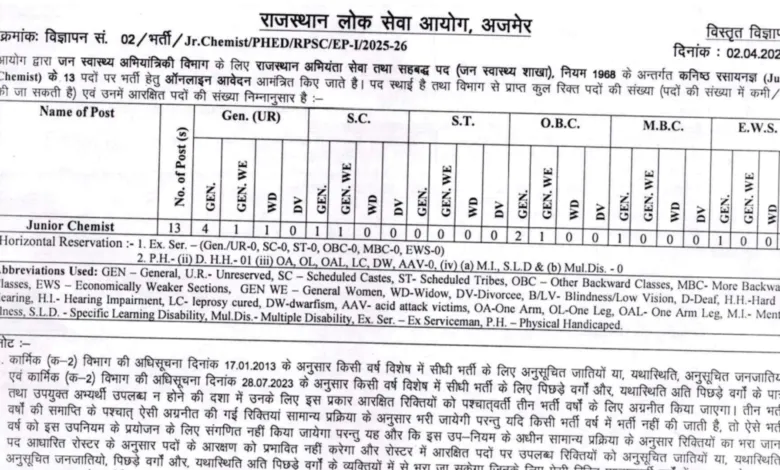 राजस्थान लोक सेवा आयोग, अजमेर
क्रमांकः विज्ञापन सं. 02/भर्ती/Jr.Chemist/PHED/RPSC/EP-I/2025-26
विस्तृत विज्ञाप
दिनांक : 02.04.202
आयोग द्वारा जन स्वास्थ्य अभियांत्रिकी विभाग के लिए राजस्थान अभियंता सेवा तथा सहबद्ध पद (जन स्वास्थ्य शाखा), नियम 1968 के अन्तर्गत कनिष्ठ रसायनज्ञ (Ju
Chemist) के 13 पदों पर भर्ती हेतु ऑनलाइन आवेदन आमंत्रित किए जाते है। पद स्थाई है तथा विभाग से प्राप्त कुल रिक्त पदों की संख्या (पदों की संख्या में कमी/
की जा सकती है) एवं उनमें आरक्षित पदों की संख्या निम्नानुसार है :–
Name of Post No. of Post (s) Gen. (UR) S.C. S.T. O.B.C. M.B.C. E.W.S.
GEN. GEN. WE WD DV GEN. GEN. WE WD DV GEN. GEN. WE WD DV GEN. GEN. WE WD DV GEN. GEN. WE WD DV GEN. GEN. WE WD
Junior Chemist 13 4 1 1 0 1 1 0 0 0 0 0 0 2 1 0 0 1 0 0 0 1 0 0
Horizontal Reservation :- 1. Ex. Ser. – (Gen./UR-0, SC-0, ST-0, OBC-0, MBC-0, EWS-0)
2. P.H.- (ii) D. H.H.- 01 (iii) OA, OL, OAL, LC, DW, AAV-0, (iv) (a) M.I., S.L.D & (b) Mul.Dis. - 0
Abbreviations Used: GEN – General, U.R.- Unreserved, SC – Scheduled Castes, ST- Scheduled Tribes, OBC – Other Backward Classes, MBC- More Backwa
lasses, EWS – Economically Weaker Sections, GEN WE – General Women, WD-Widow, DV-Divorcee, B/LV- Blindness/Low Vision, D-Deaf, H.H.-Hard
earing, H.I.- Hearing Impairment, LC- leprosy cured, DW-dwarfism, AAV- acid attack victims, OA-One Arm, OL-One Leg, OAL- One Arm Leg, M.I.- Ment
lness, S.L.D. - Specific Learning Disability, Mul.Dis.- Multiple Disability, Ex. Ser. – Ex Serviceman, P.H. – Physical Handicaped.
नोट :–
. कार्मिक (क-2) विभाग की अधिसूचना दिनांक 17.01.2013 के अनुसार किसी वर्ष विशेष में सीधी भर्ती के लिए अनुसूचित जातियों या, यथास्थिति, अनुसूचित जनजातिय
एवं कार्मिक (क-2) विभाग की अधिसूचना दिनांक 28.07.2023 के अनुसार किसी वर्ष विशेष में सीधी भर्ती के लिए पिछड़े वर्गों और, यथास्थिति अति पिछड़े वर्गों के पा
तथा उपयुक्त अभ्यर्थी उपलब्ध न होने की दशा में उनके लिए इस प्रकार आरक्षित रिक्तियों को पश्चातवर्ती तीन भर्ती वर्षों के लिए अग्रनीत किया जाएगा। तीन भर्त
वर्षों की समाप्ति के पश्चात् ऐसी अग्रनीत की गई रिक्तियां सामान्य प्रक्रिया के अनुसार भरी जायेगी परन्तु यदि किसी भर्ती वर्ष में भर्ती नहीं की जाती है, तो ऐसे भर्त
वर्ष को इस उपनियम के प्रयोजन के लिए संगणित नहीं किया जायेगा परन्तु यह और कि इस उप–नियम के अधीन सामान्य प्रक्रिया के अनुसार रिक्तियों का भरा जान
पद आधारित रोस्टर के अनुसार पदों के आरक्षण को प्रभावित नहीं करेगा और रोस्टर में आरक्षित पदों पर उपलब्ध रिक्तियों को अनुसूचित जातियों या, यथास्थिति
अनुसूचित जनजातियो, पिछड़े वर्गों और, यथास्थिति अति पिछड़े वर्गों के व्यक्तियों में से भरा जा सकेगा